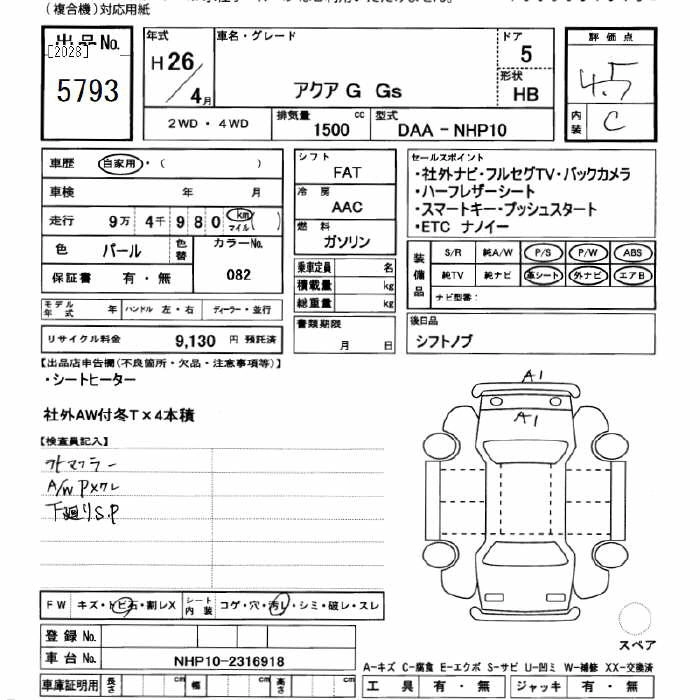 (複合機)対応用紙
出品No.
[2028]
5793
年式
H 26 / 4 月
車名・グレード
アクア G Gs
ドア
5
形状
HB
評価点
4.5
内装
C
2WD・4WD
排気量 1500 cc
型式 DAA-NHP10
車歴 自家用・( )
車検 年 月
走行 9万 4千 9 8 0 km マイル ( )
色 パール
色替
カラーNo. 082
保証書 有・無
モデル年式 年 ハンドル 左・右 ディーラー・並行
リサイクル料金 9,130 円 預託済
シフト
FAT
冷房
AAC
燃料
ガソリン
乗車定員 名
積載量 kg
総重量 kg
書類期限
月 日
セールスポイント
・社外ナビ・フルセグTV・バックカメラ
・ハーフレザーシート
・スマートキー・プッシュスタート
・ETC ナノイー
装備品
S/R 純A/W P/S P/W ABS
純TV 純ナビ 革シート 外ナビ エアB
ナビ型番:
後日品
シフトノブ
【出品店申告欄(不良箇所・欠品・注意事項等)】
・シートヒーター
社外AW付冬T×4本積
【検査員記入】
外マフラー
A/W P×ワレ
下廻りS.P
A1
A1
FW キズ・トビ石・割レX
シート内装 コゲ・穴・汚レ・シミ・破レ・スレ
登録No.
車台No. NHP10-2316918
車庫証明用 長さ cm 幅 cm 高さ cm
スペア
A-キズ C-腐食 E-エクボ S-サビ U-凹ミ W-補修 XX-交換済
工具 有・無 ジャッキ 有・無